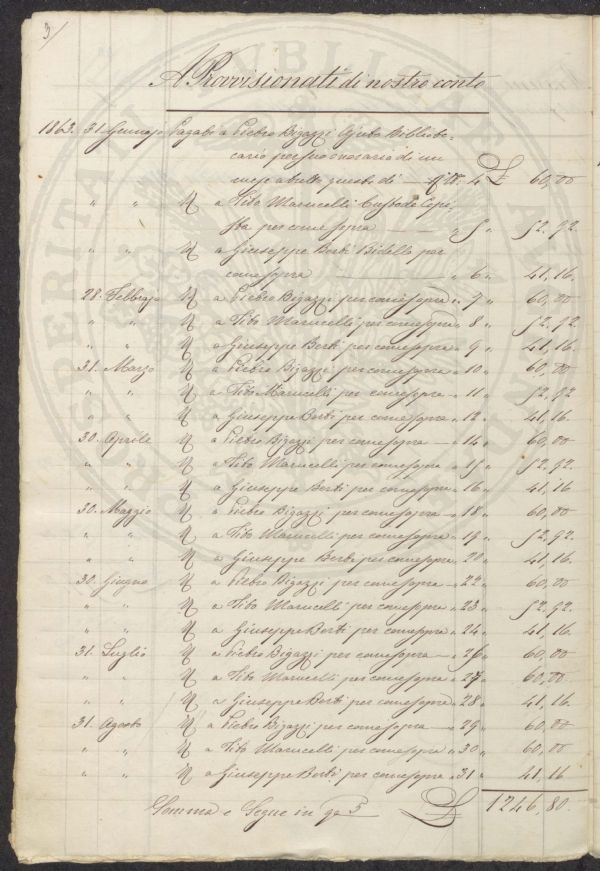 3/
A Provvisionati di nostro conto
1863. 31 Gennajo Pagati a Pietro Bigazzi Ajuto Bibliote=
cario per suo onorario di un
mese a tutto questo dì — 4 £ 60,00
" " a Tito Marucelli Custode Copi
sta per come sopra — " 5 " 52.92.
" " a Giuseppe Berti Bidello per
come sopra — " 6 " 41,16.
28. Febbrajo a Pietro Bigazzi per come sopra " 7 " 60,00
" " a Tito Marucelli per come sopra " 8 " 52.92.
" " a Giuseppe Berti per come sopra " 9 " 41,16.
31. Marzo a Pietro Bigazzi per come sopra " 10 " 60,00
" " a Tito Marucelli per come sopra " 11 " 52,92
" " a Giuseppe Berti per come sopra " 12 " 41,16.
30. Aprile a Pietro Bigazzi per come sopra — " 14 " 60,00
" " a Tito Marucelli per come sopra " 15 " 52,92.
" " a Giuseppe Berti per come sopra " 16 " 41,16
30. Maggio a Pietro Bigazzi per come sopra " 18 " 60,00
" " a Tito Marucelli per come sopra " 19 " 52,92.
" " a Giuseppe Berti per come sopra " 20 " 41,16.
30. Giugno a Pietro Bigazzi per come sopra — " 22 " 60,00
" " a Tito Marucelli per come sopra " 23 " 52,92.
" " a Giuseppe Berti per come sopra " 24 " 41,16.
31. Luglio a Pietro Bigazzi per come sopra — " 26 " 60,00
" " a Tito Marucelli per come sopra " 27 " 60,00.
" " a Giuseppe Berti per come sopra " 28 " 41,16
31. Agosto a Pietro Bigazzi per come sopra — " 29 " 60,00
" " a Tito Marucelli per come sopra " 30 " 60,00
" " a Giuseppe Berti per come sopra " 31 " 41,16
Somma e Segue in 5 £ 1246,80.